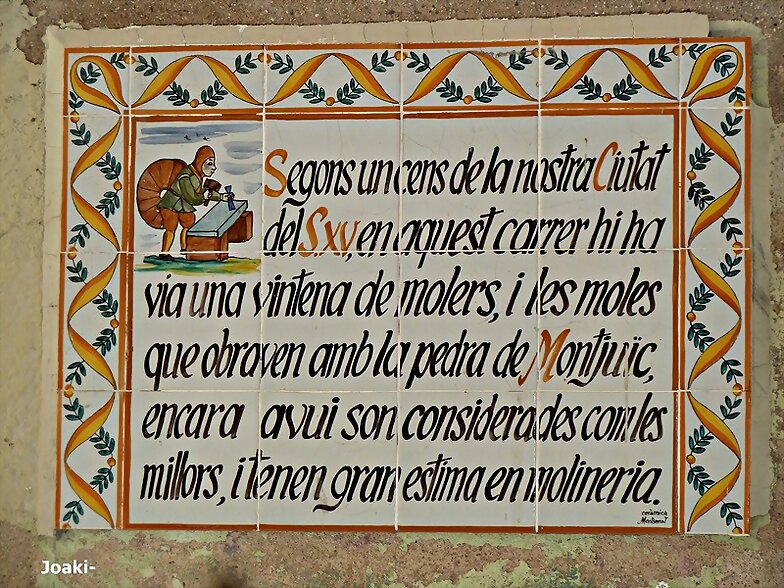 Segons un cens de la nostra Ciutat
del Sxv, en aquest carrer hi ha
via una vintena de molers, i les moles
que obraven amb la pedra de Montjuïc,
encara avui son considerades com les
millors, i tenen gran estima en molineria.
ceràmica
Montserrat
Joaki-